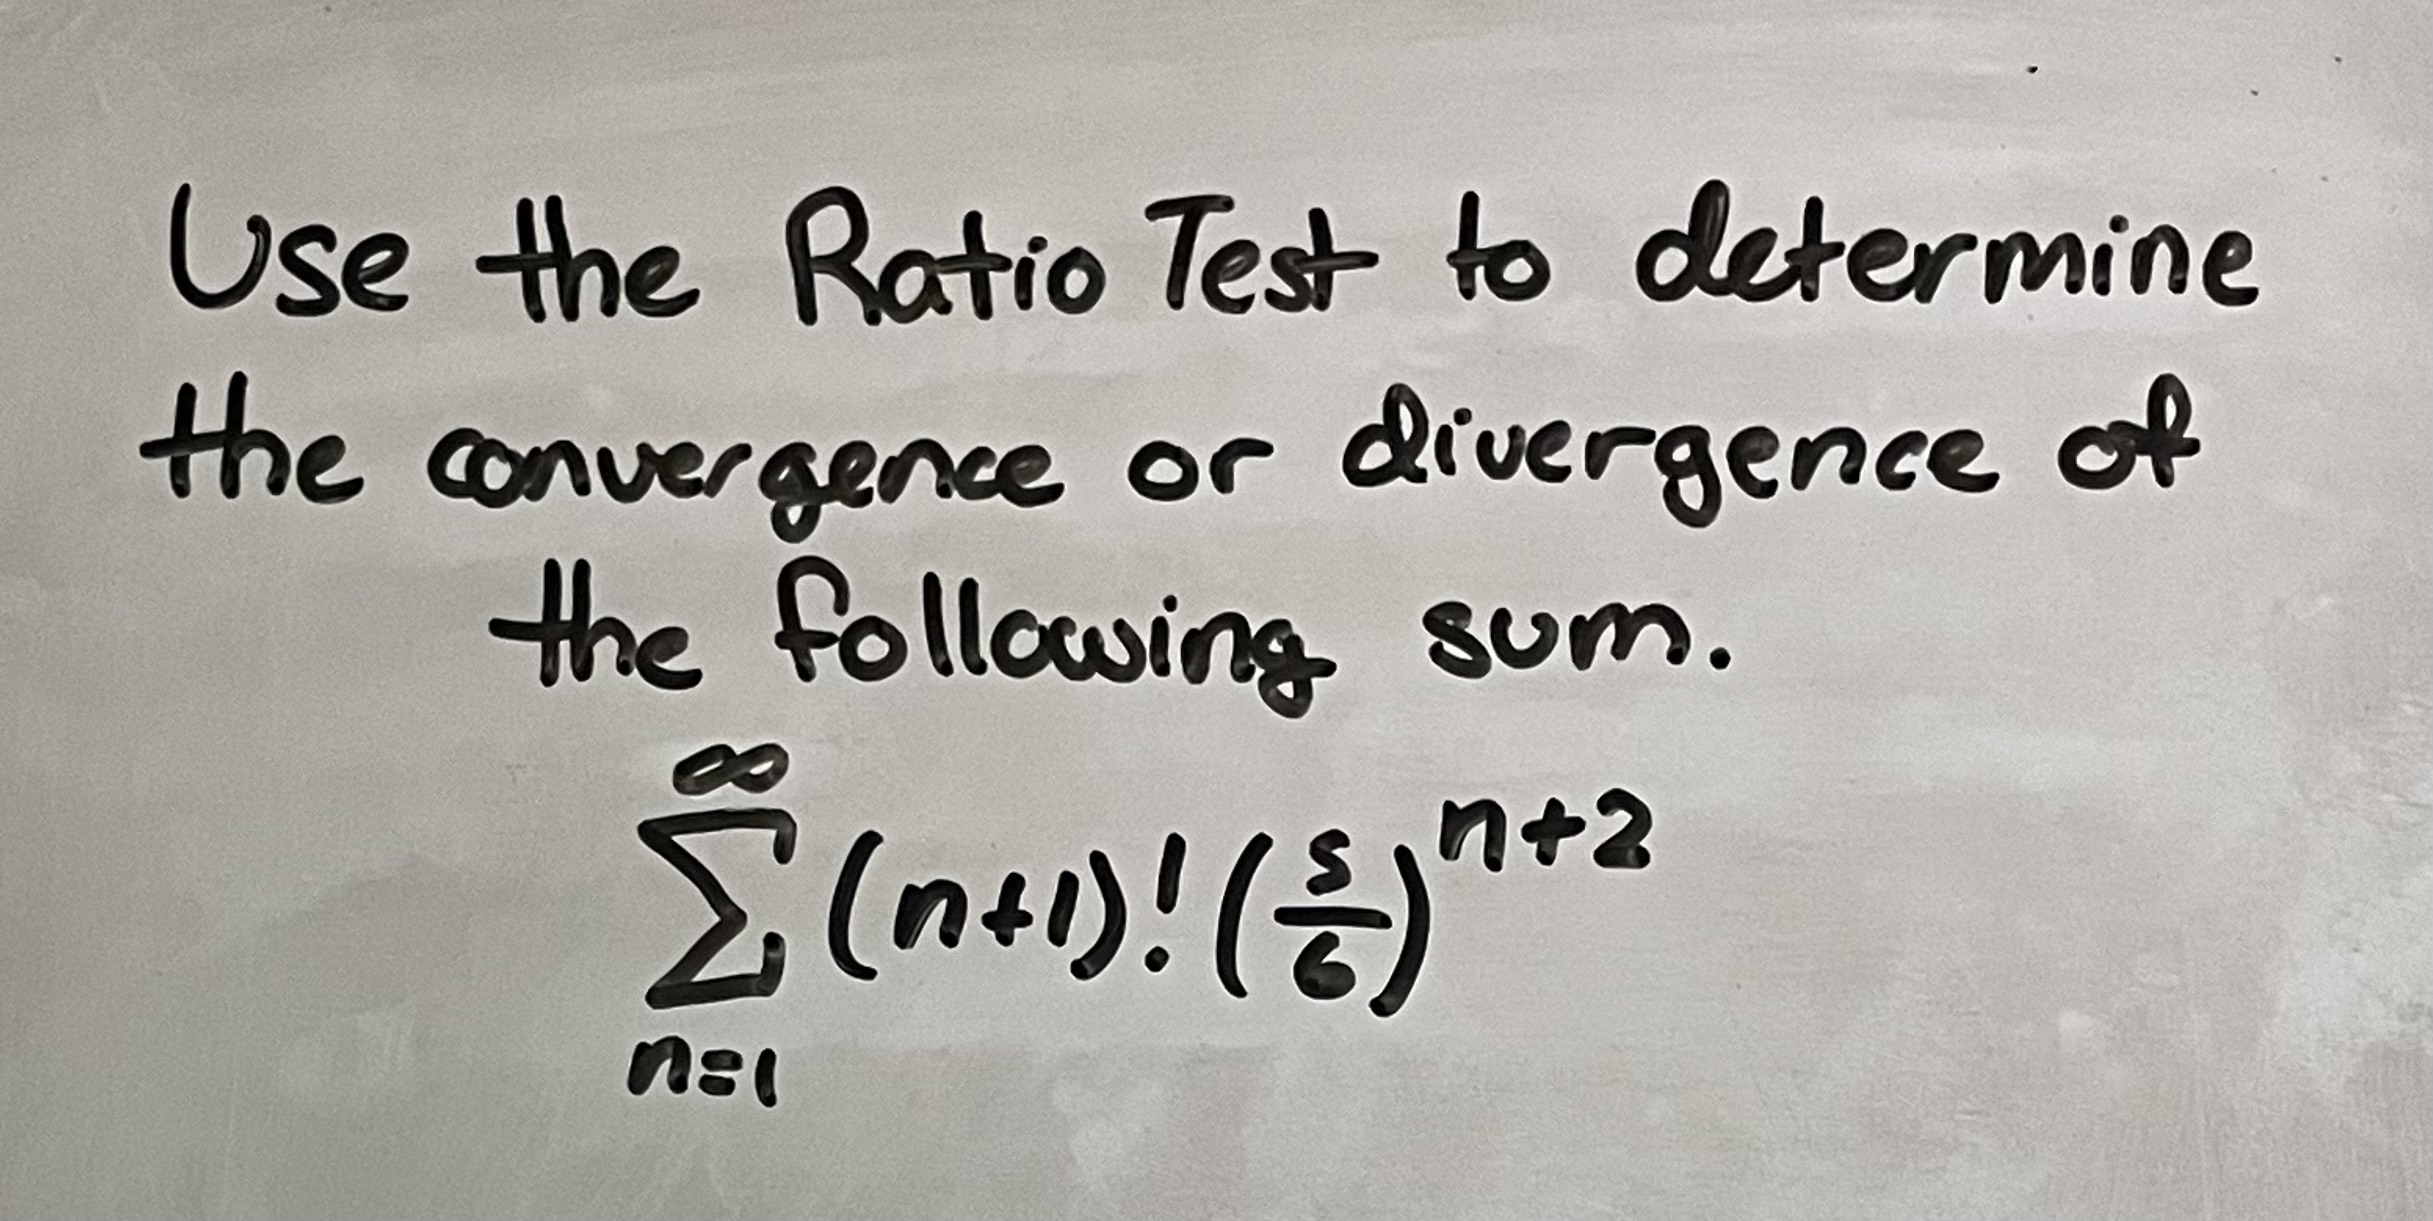 Use the Ratio Test to determine
the convergence or divergence of
the following sum.
∞
∑ (n+1)! (5/6)^n+2
n=1